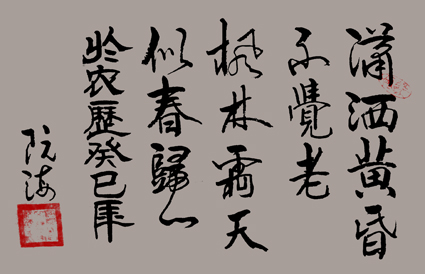 瀟洒黄昏
不覺老
楓林霜天
似春歸
於农歷癸巳年
阮海